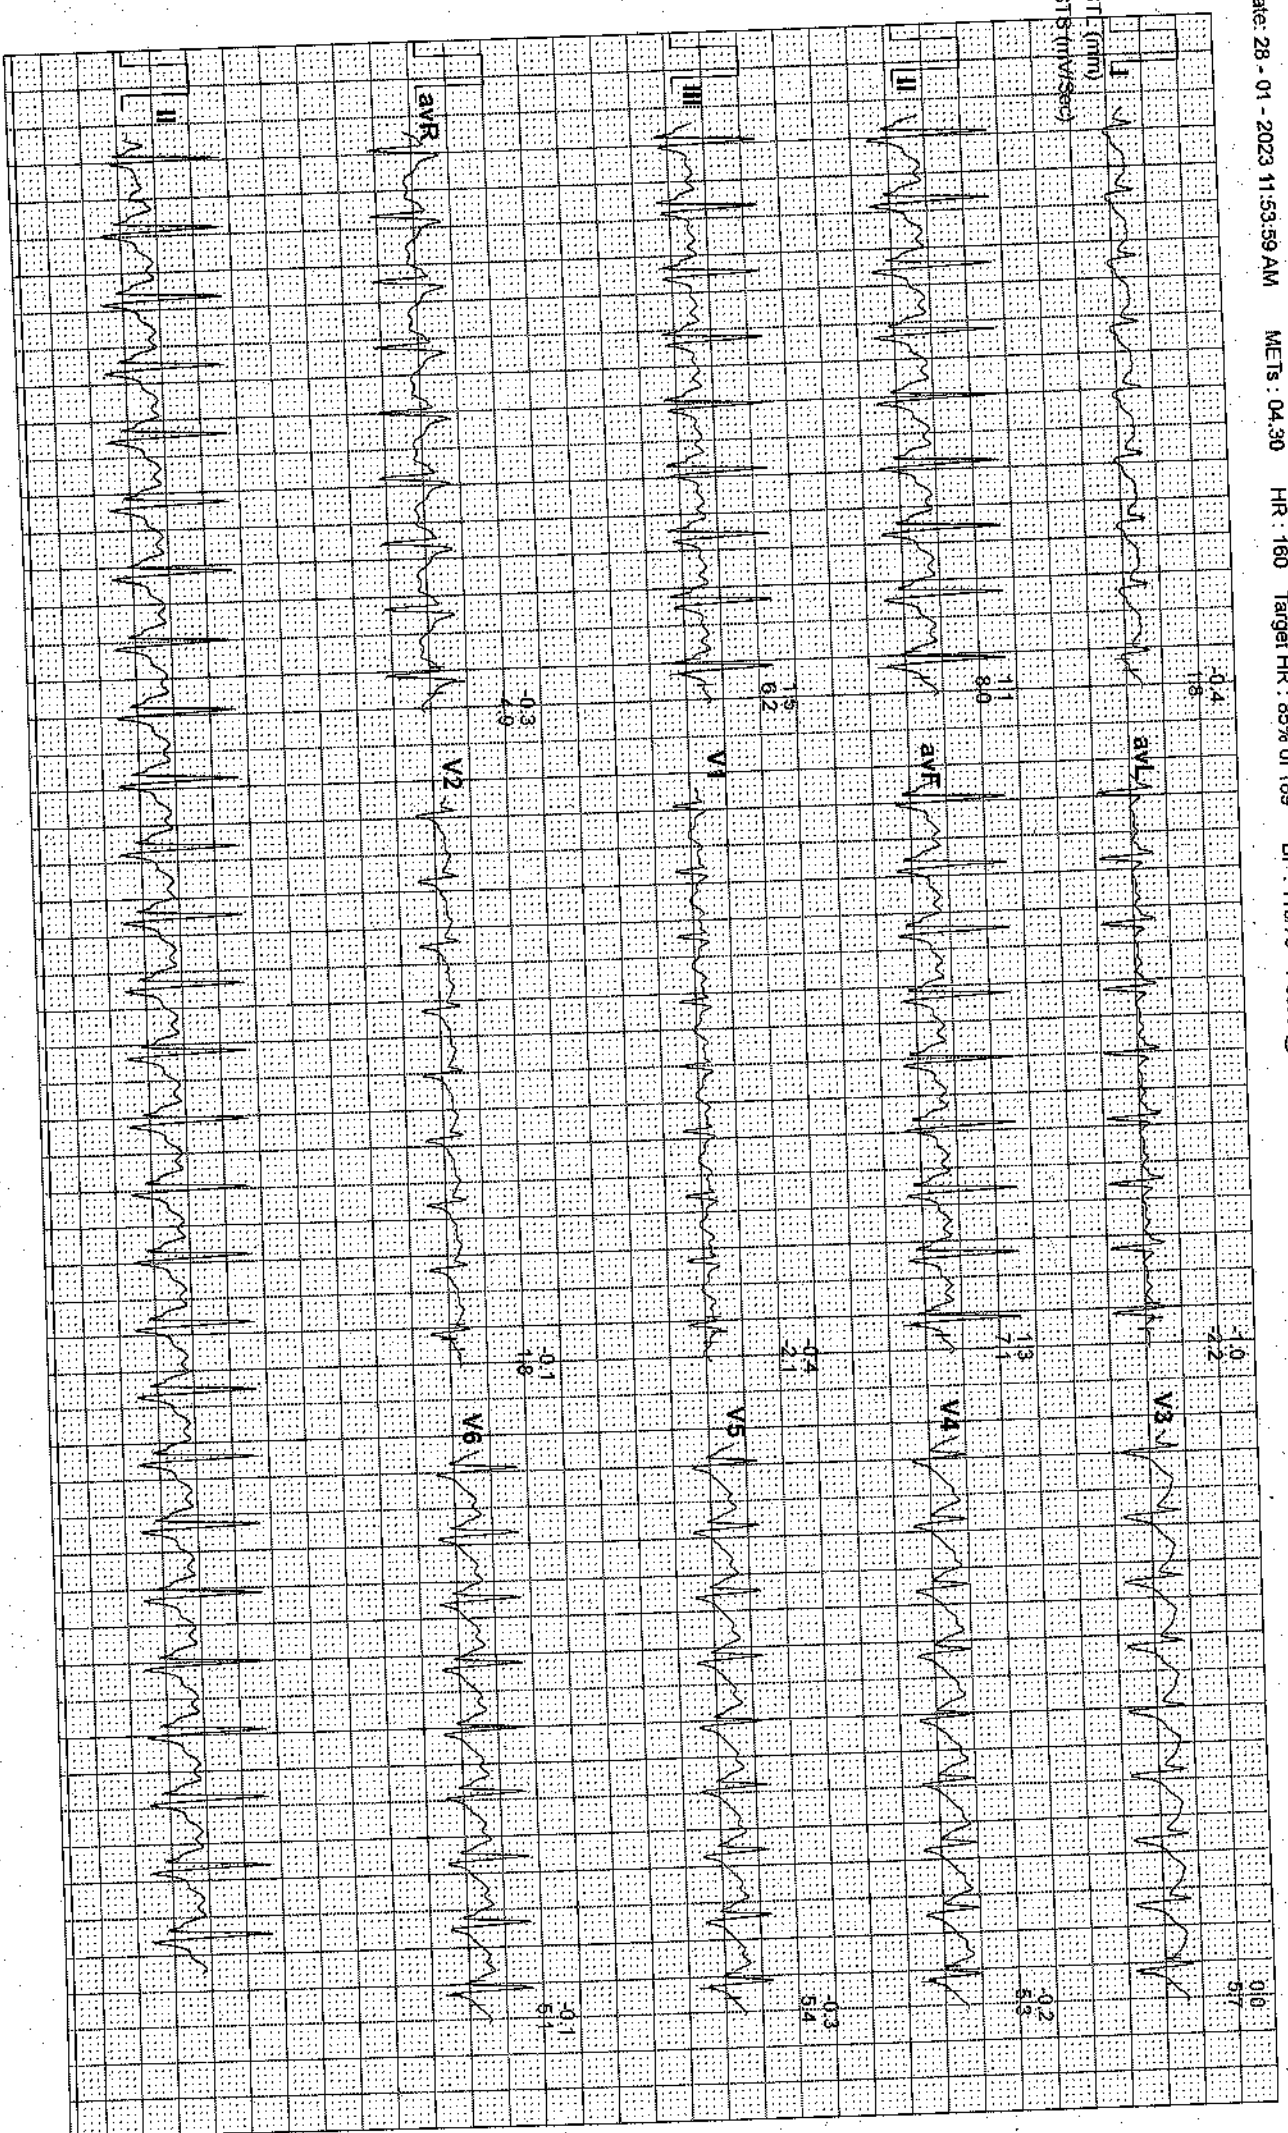 ate: 28 - 01 - 2023 11:53:59 AM METs : 04.30 HR : 160 Target HR : 85% of
STL (mm)
STS (mV/Sec)
I
-0.4
1.8
avL
-1.0
-2.2
V3
0.0
5.7
II
1.1
8.0
avF
1.3
7.1
V4
-0.2
5.3
III
1.5
6.2
V1
-0.4
-2.1
V5
-0.3
5.4
avR
-0.3
4.9
V2
-0.1
1.8
V6
-0.1
5.1
II